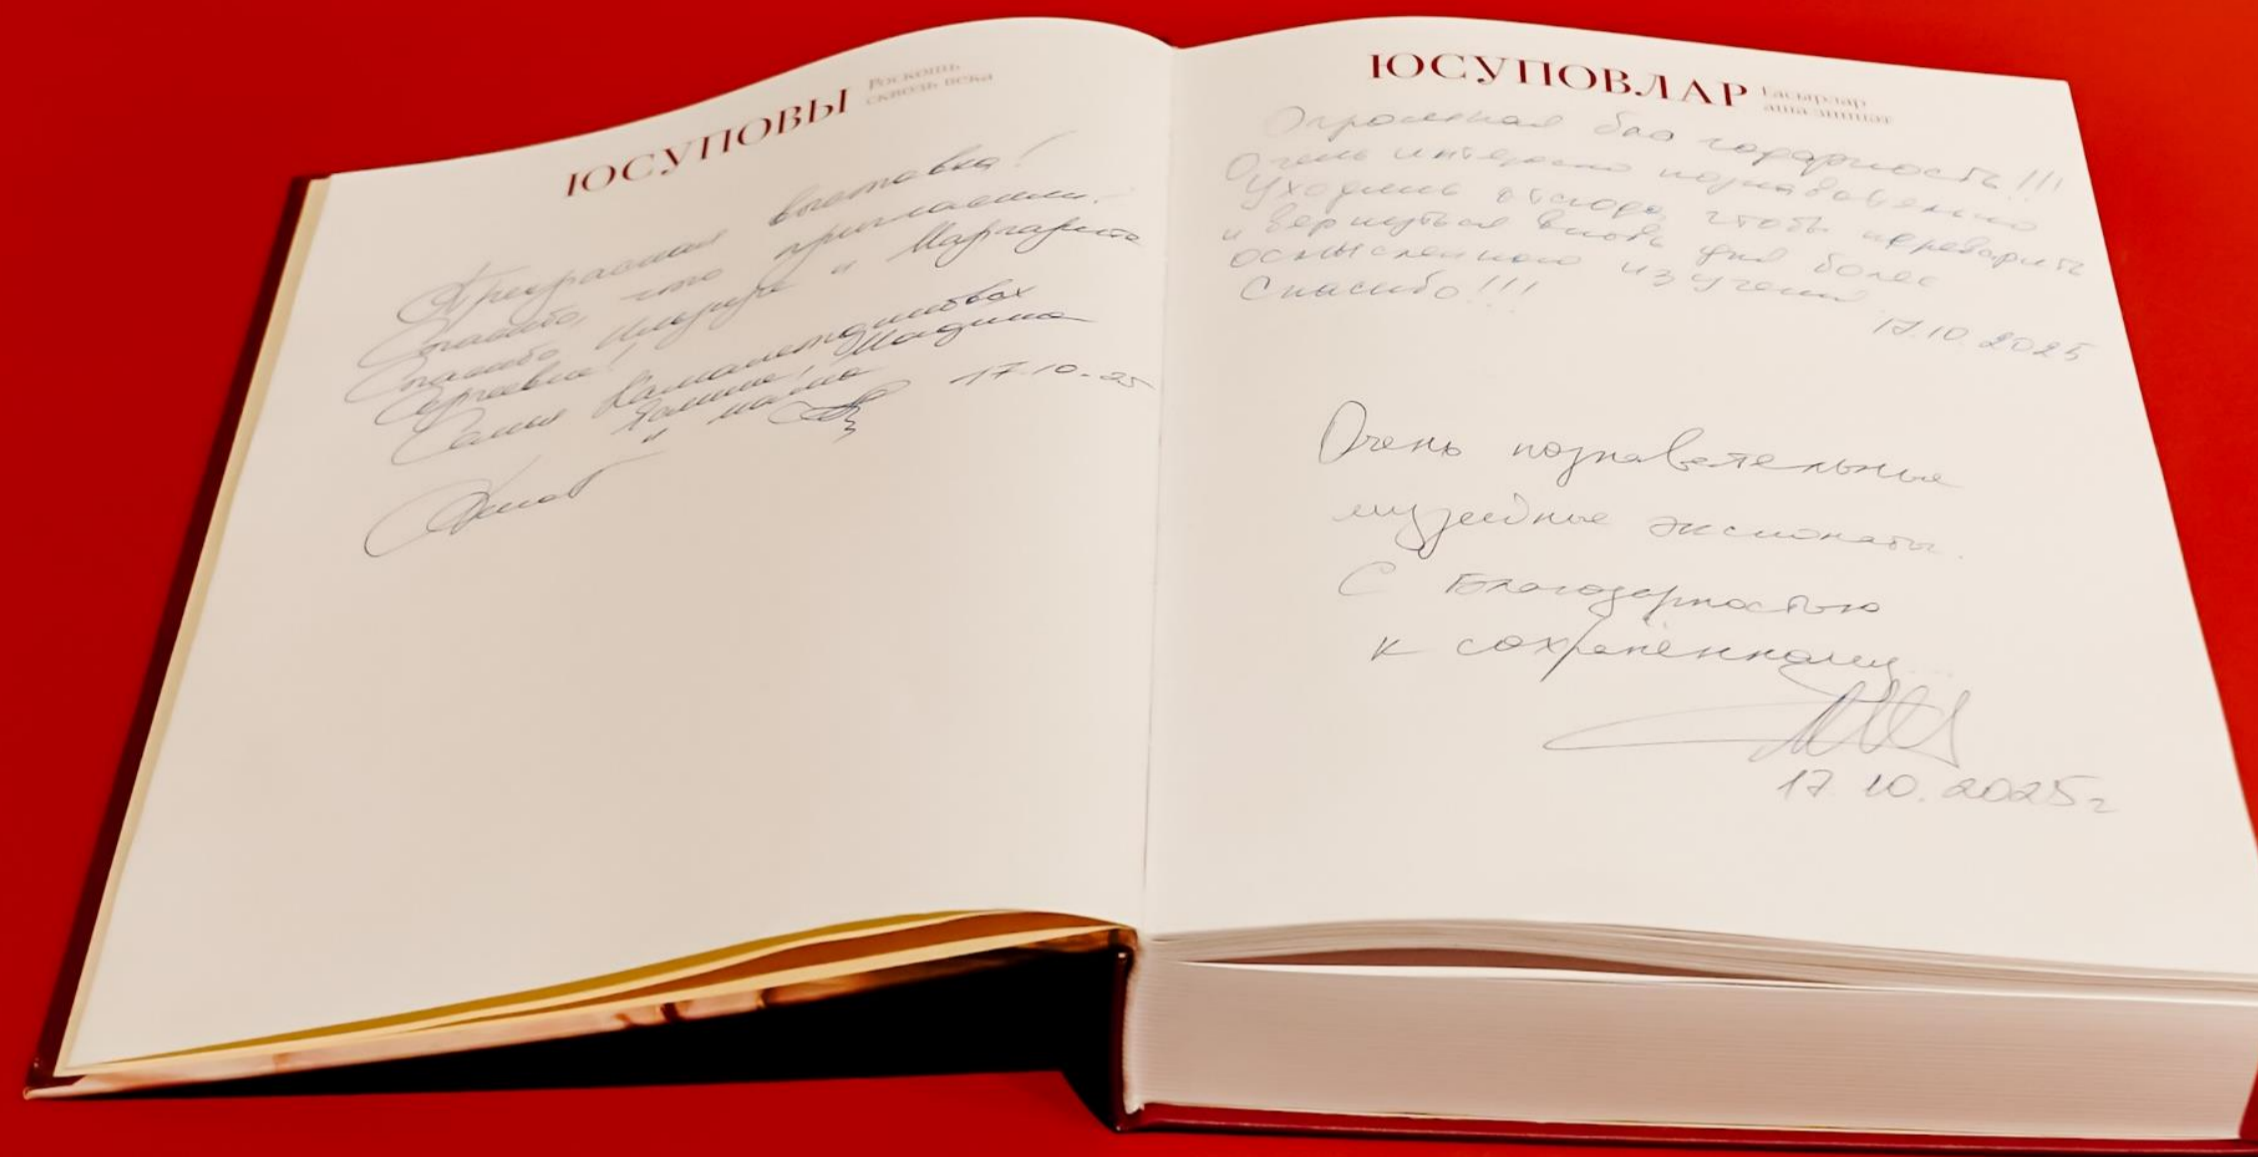 ЮСУПОВЫ
Роскошь
сквозь века
Прекрасная выставка!
Спасибо, что пригласили.
Спасибо и Маргарита
Сергеевна!
Семья Камалетдиновых
Мадина
и мама
17.10.25
ЮСУПОВЛАР
Гасырлар
аша зиннәт
Огромная благодарность!!!
Очень интересно познавательно
Уходишь отсюда, чтобы переварить
и вернуться вновь для более
осмысленного изучения
Спасибо!!!
17.10.2025
Очень познавательные
музейные экспонаты.
С благодарностью
к сохранённому...
17.10.2025г